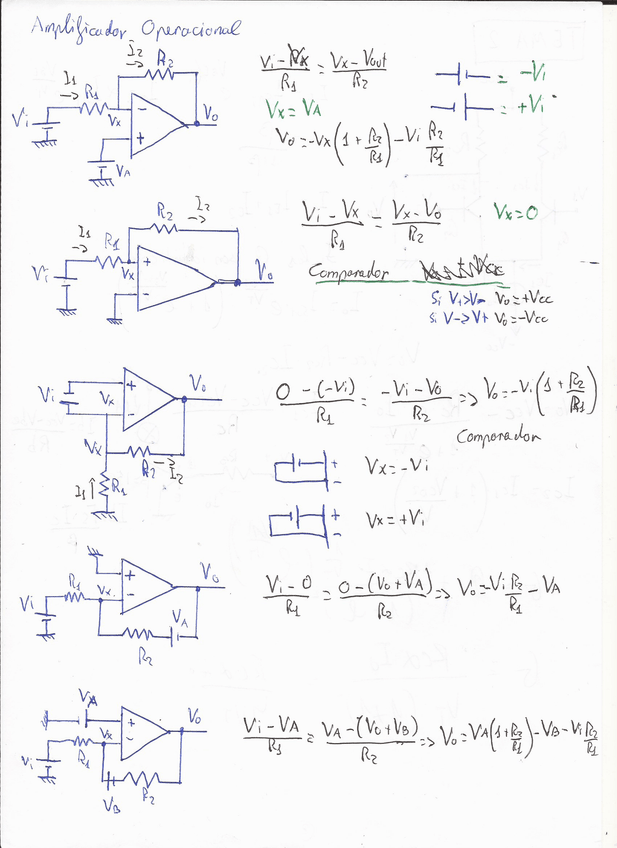 Amplificador Operacional
I1 → R1 I2 → R2
Vi Vx - + Vo VA
Vi - Vx / R1 = Vx - Vout / R2
Vx = VA
Vo = -Vx(1 + R2/R1) - Vi R2/R1
= -Vi
= +Vi
I1 → R1 R2 I2 →
Vi Vx + - Vo
Vi - Vx / R1 = Vx - Vo / R2 Vx = 0
Comparador
Si V+>V- Vo = +Vcc
Si V->V+ Vo = -Vcc
Vi Vx + - Vo
Vx R2 → I2
I1 ↑ R1
0 - (-Vi) / R1 = -Vi - Vo / R2 => Vo = -Vi(1 + R2/R1)
Comparador
+ - Vx = -Vi
+ - Vx = +Vi
Vi R1 Vx + - Vo
R2 VA
Vi - 0 / R1 = 0 - (Vo + VA) / R2 => Vo = -Vi R2/R1 - VA
VA
Vi R1 Vx + - Vo
VB R2
Vi - VA / R1 = VA - (Vo + VB) / R2 => Vo = VA(1 + R2/R1) - VB - Vi R2/R1